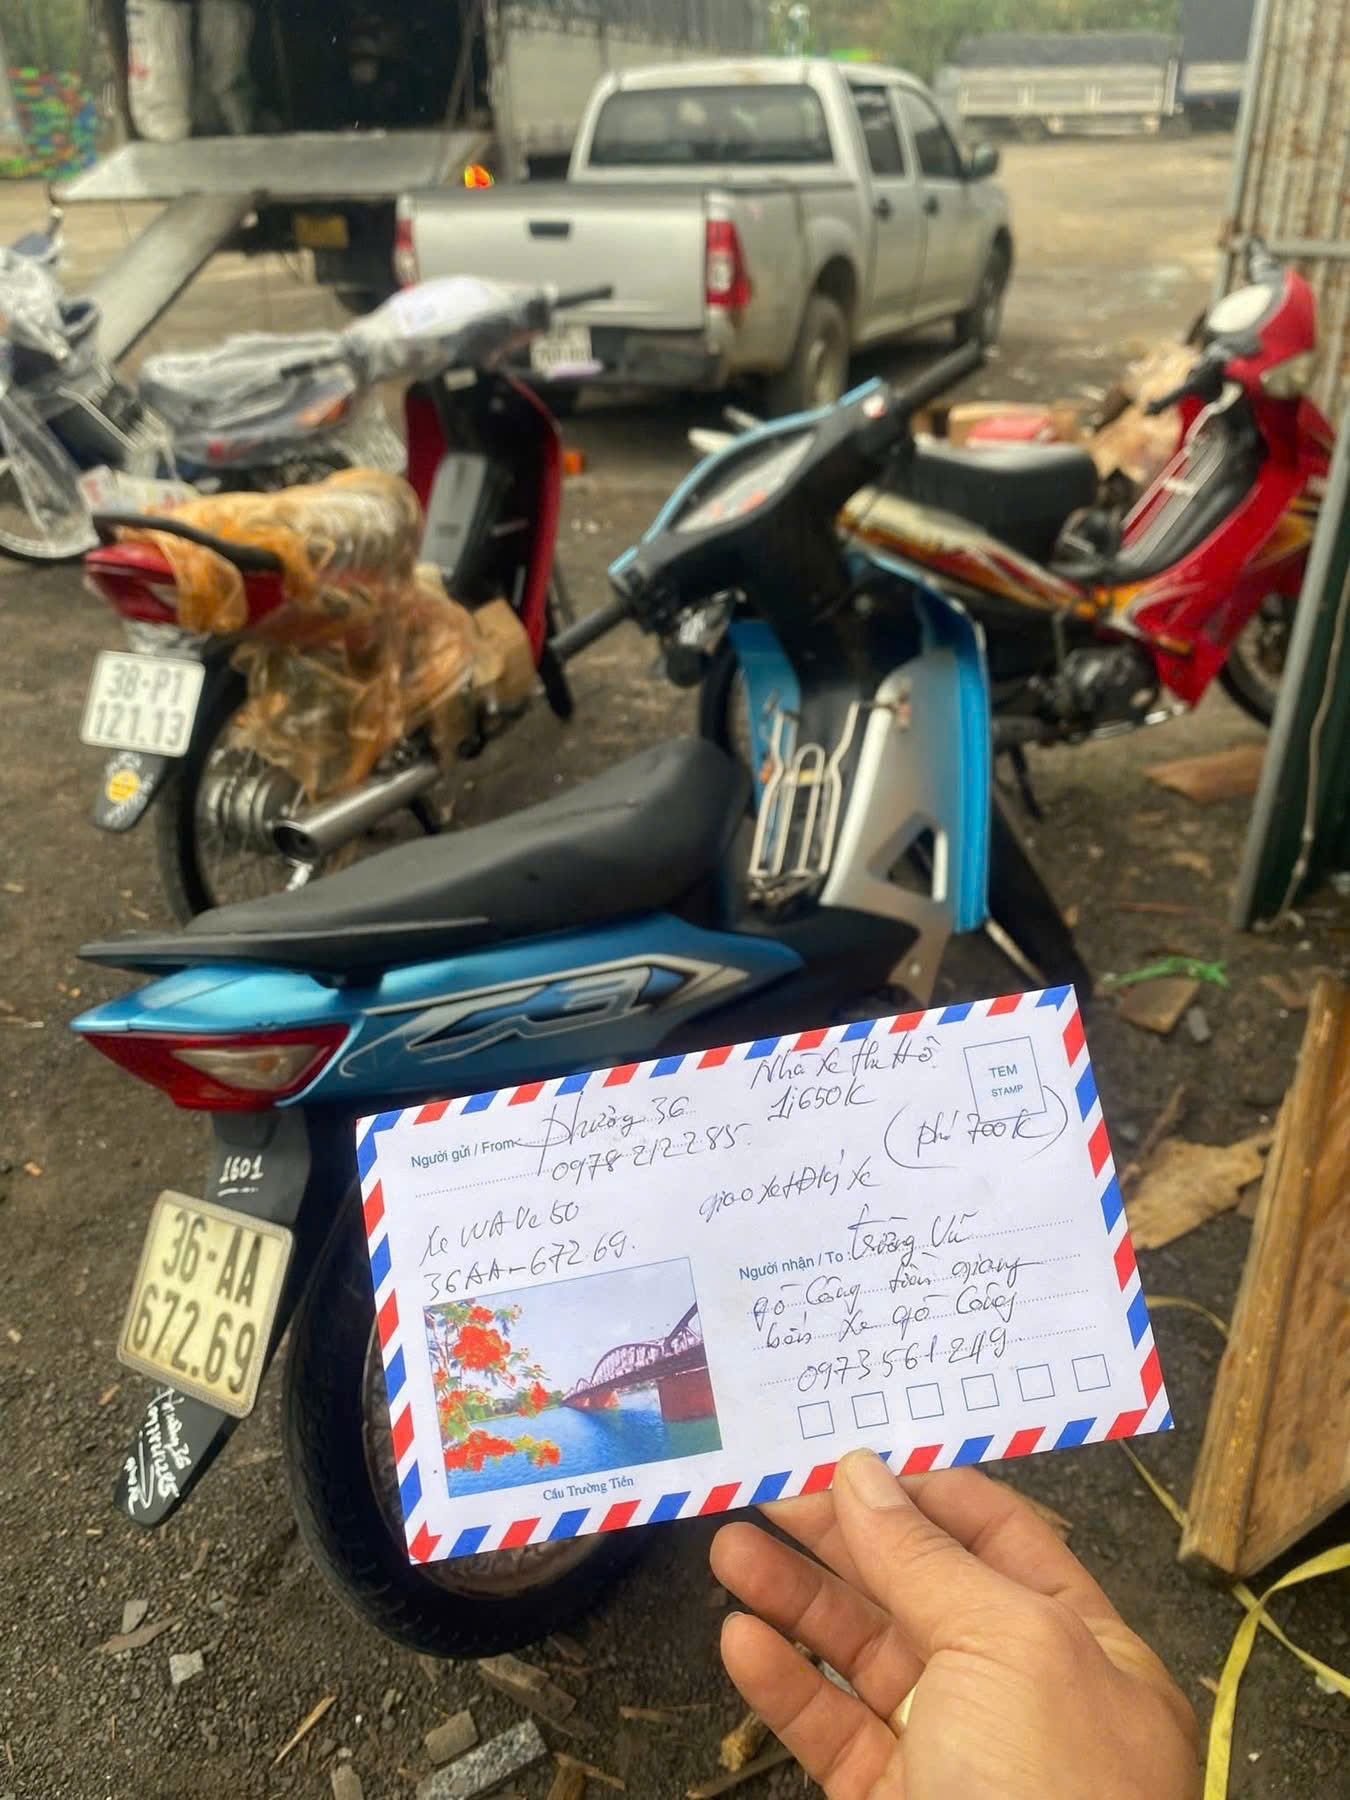 38-P1
121.13
Nhà Xe thu Hộ
1i650K
TEM
STAMP
(phí 700K)
Người gửi / From: phường 36
0978 212285.
giao xe + Đký xe
Xe WAVe 50
36AA-672.69.
Người nhận / To : trường Vũ
gò Công tiền giang
bến xe gò Công
0973561249.
Cầu Trường Tiền
1601
36-AA
672.69